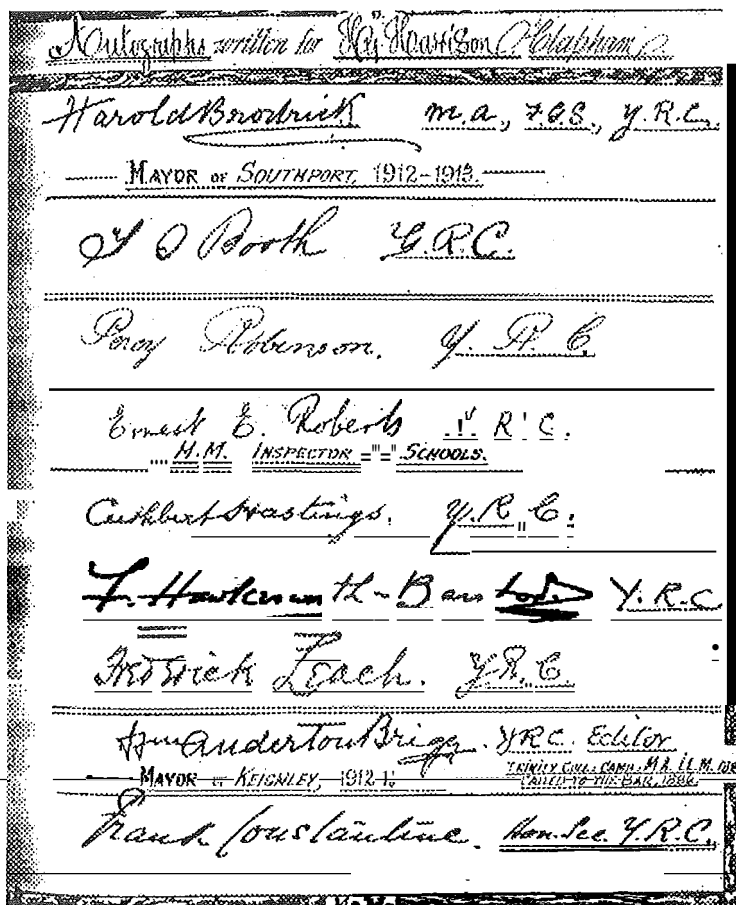 Autographs written for Hy. Harrison Clapham
Harold Brodrick M.A., F.G.S., Y.R.C.
MAYOR OF SOUTHPORT, 1912-1913.
Booth Y.R.C.
Percy Robinson. Y.R.C.
Ernest E. Roberts R.C.
H.M. INSPECTOR SCHOOLS.
Cuthbert Hastings. Y.R.C.
Y.R.C
Frederick Leach. Y.R.C.
Wm Anderton Brigg. YRC. Editor
TRINITY COLL. CAMB. M.A.
MAYOR KEIGHLEY, 1912
CALLED TO THE BAR, 1886.
Frank Constantine. Hon. Sec. Y.R.C.